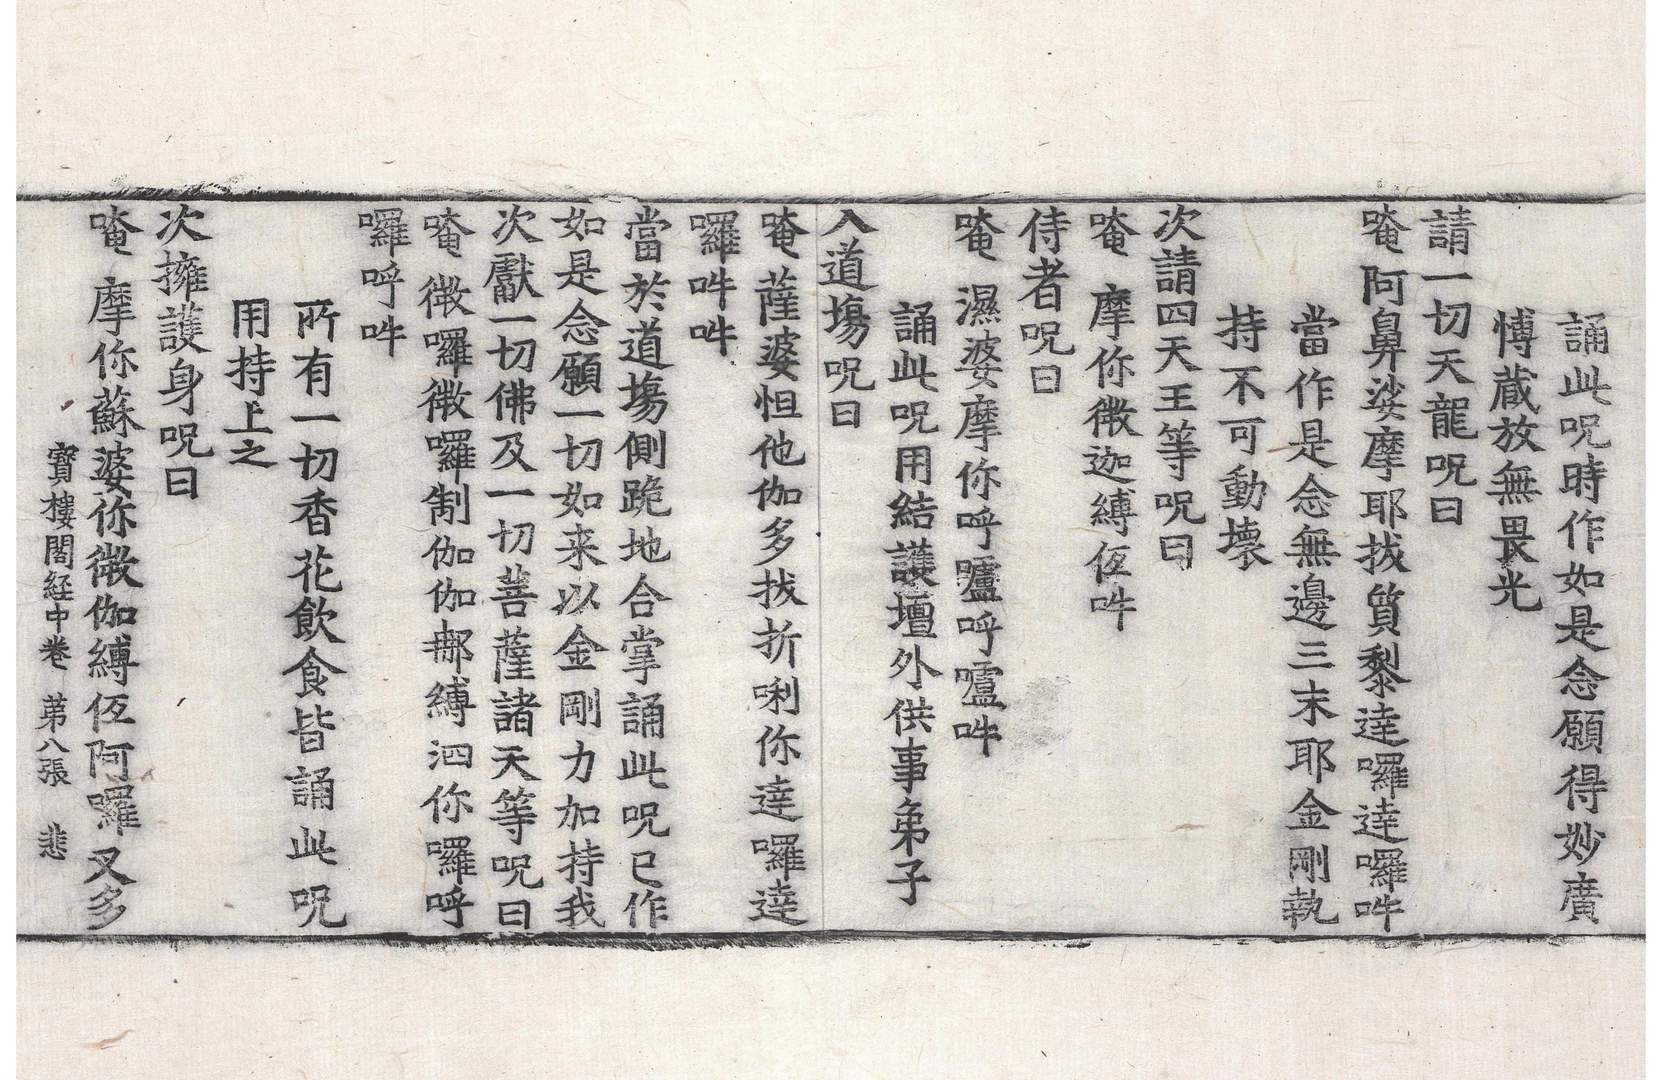 誦此呪時作如是念願得妙廣
愽蔵放無畏光
請一切天龍呪曰
唵阿鼻娑摩耶拔質黎達囉達囉吽
當作是念無邊三末耶金剛執
持不可動壞
次請四天王等呪曰
唵摩你微迦縛伍吽
侍者呪曰
唵濕婆摩你呼嚧呼嚧吽
誦此呪用結護壇外供事弟子
入道塲呪曰
唵薩婆怛他伽多拔折唎你達囉達
囉吽吽
當於道塲側跪地合掌誦此呪已作
如是念願一切如来以金剛力加持我
次獻一切佛及一切菩薩諸天等呪曰
唵微囉微囉制伽伽那縛泗你囉呼
囉呼吽
所有一切香花飲食皆誦此呪
用持上之
次擁護身呪曰
唵摩你蘇婆你微伽縛伍阿囉叉多
寶樓閣経中巻 苐八張 悲